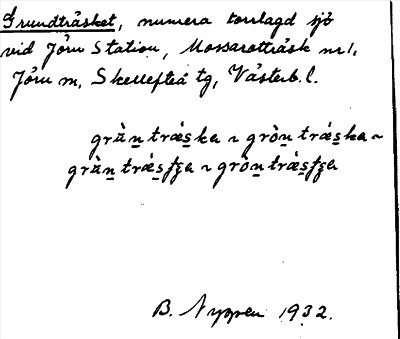 Grundträsket, numera torrlagd sjö
vid Jörn Station, Mossarotträsk nr 1,
Jörn sn, Skellefteå tg, Västerb. l.
grùn̲ træ̀s̲ka ~ gròn̲ træ̀s̲ka ~
grùn̲ træ̀s̲ʃʒa ~ gròn̲ træ̀s̲ʃʒa
B. Nyppen 1932.